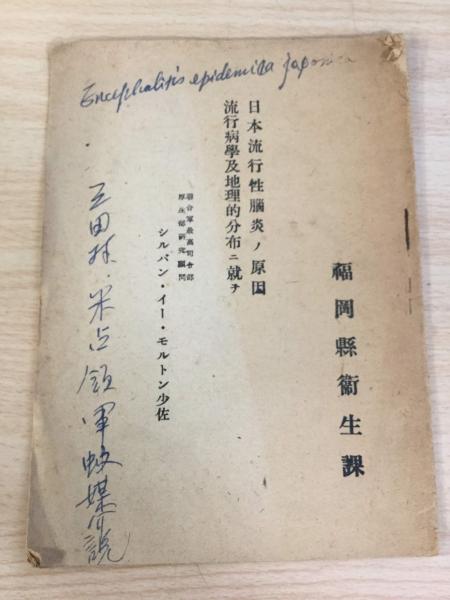 Encephalitis epidemica japonica
福岡縣衞生課
日本流行性腦炎ノ原因
流行病學及地理的分布ニ就テ
聯合軍最高司令部
厚生部研究顧問
シルバン・イー・モルトン少佐
三田村・米占領軍蚊媒介説